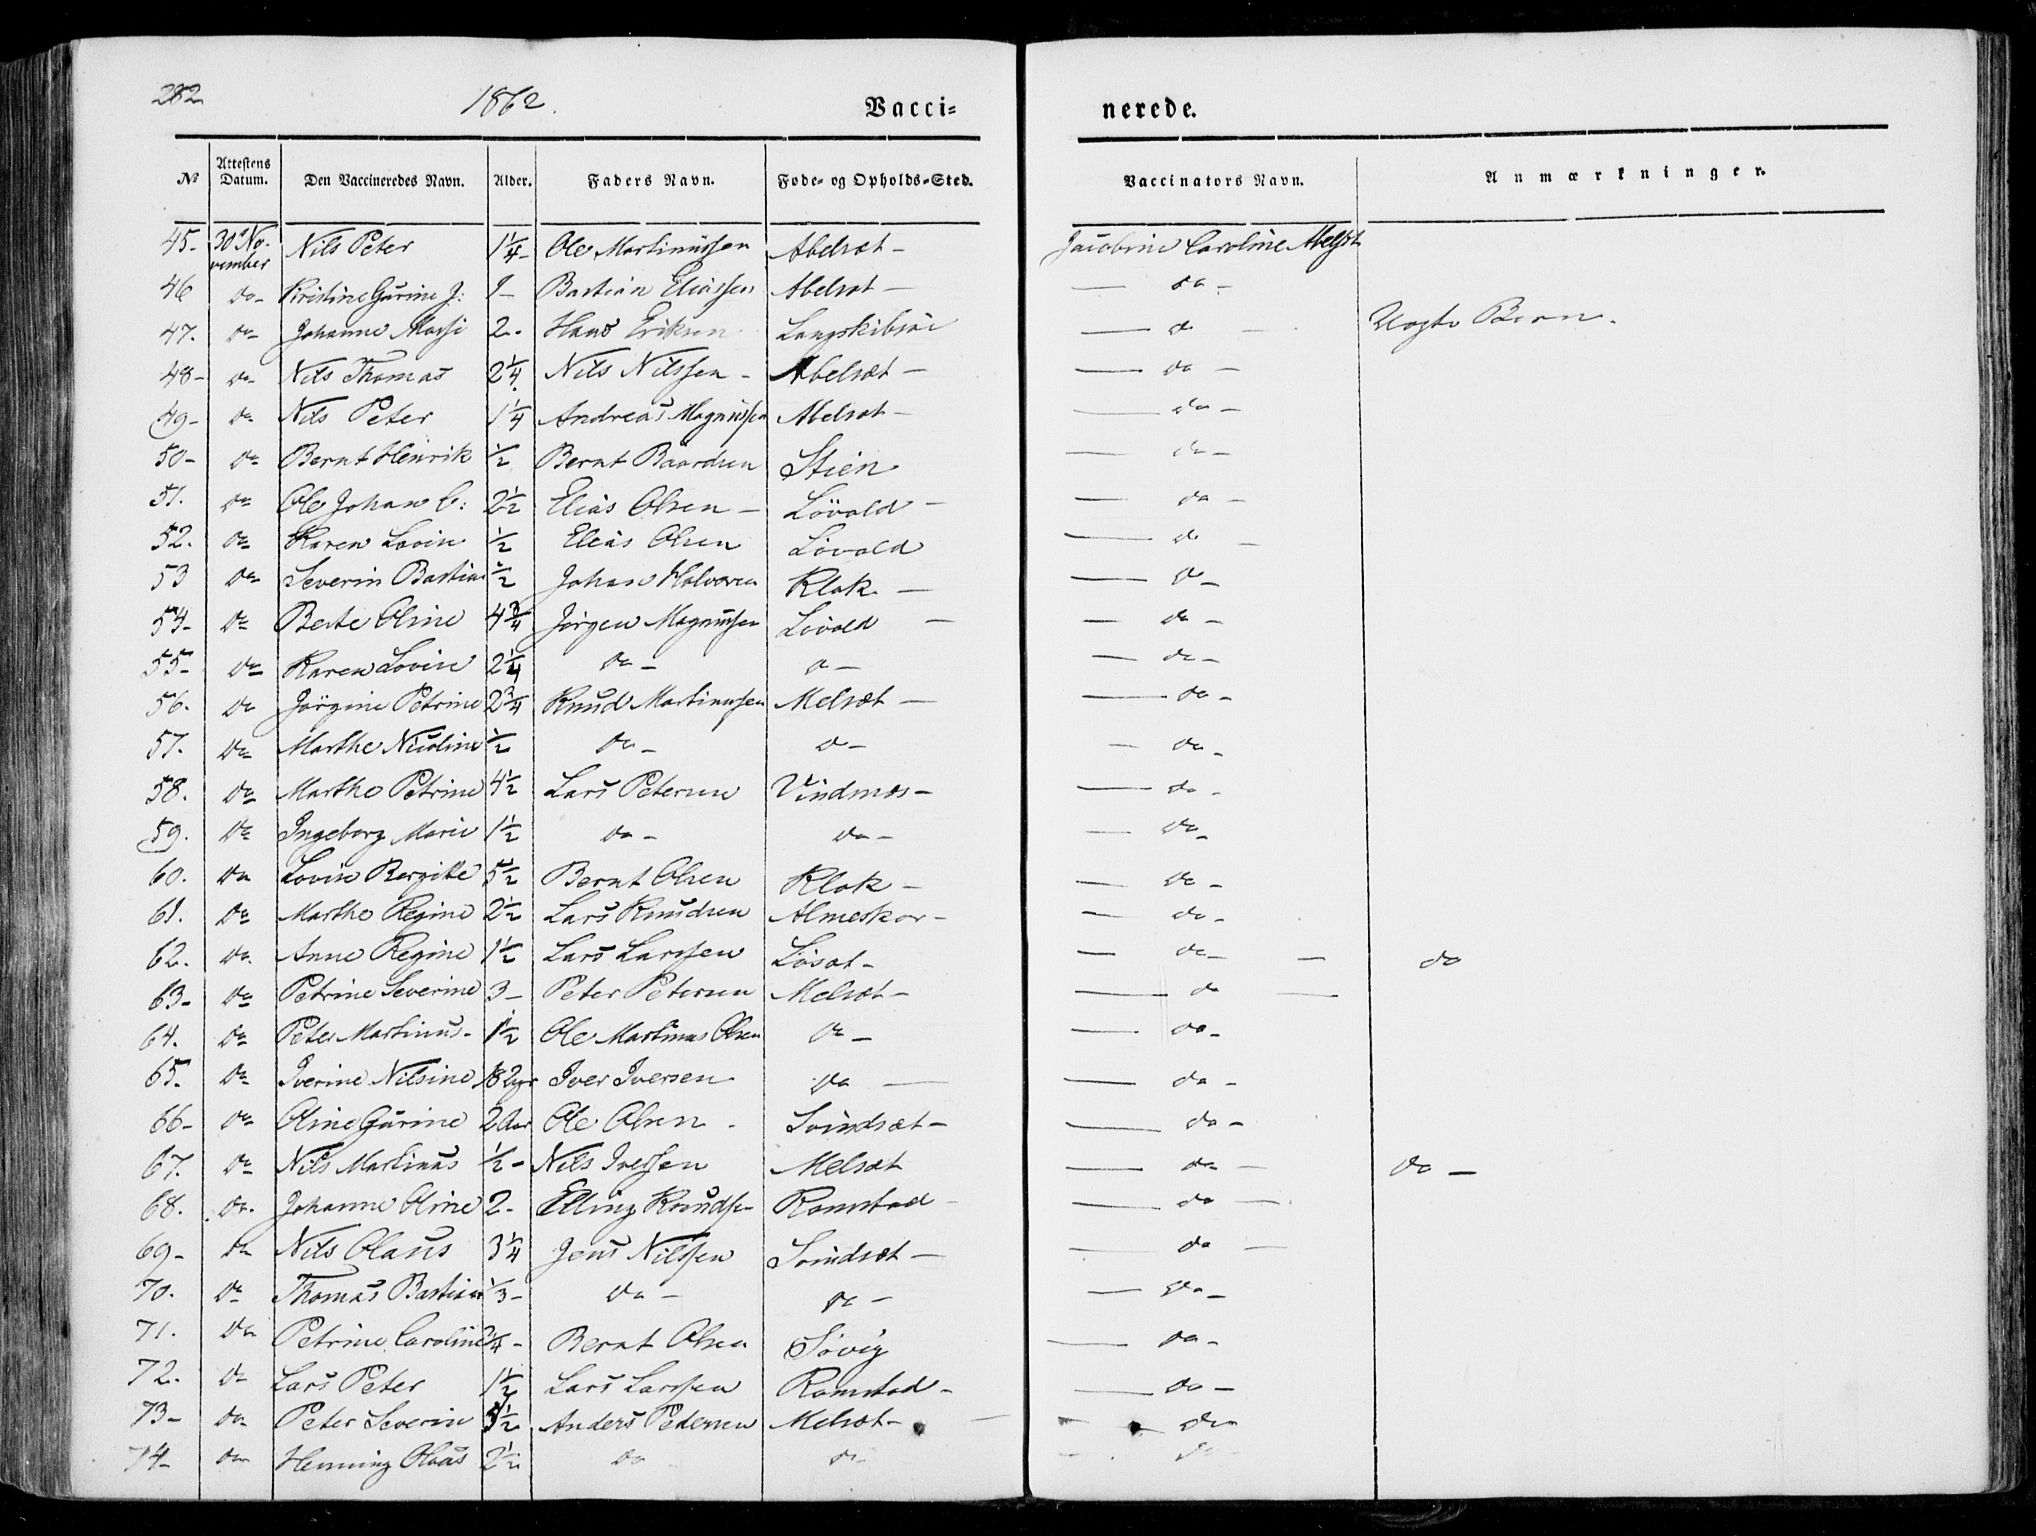 282.
1862.
Vacci=
nerede.
№ Attestens Datum. Den Vaccineredes Navn. Alder. Faders Navn. Føde- og Opholds-Sted. Vaccinators Navn. Anmærkninger.
45- 30te November Nils Peter 1¼- Ole Martinussen Abelsæt- Jacobine Caroline
46 do- Kristine Gurine J: 1- Bastian Eliassen Abelsæt- — do-
47. do- Johanne 2- Hans Eriksen — do - Uægte Barn.
48- do- Nils Thomas 2¼ Nils Nilssen- Abelsæt- — do-
49- do- Nils Peter 1¼ Andreas Magnussen Abelsæt- — do-
50- do- Bernt Henrik ½ Bernt Baardsen Stien — do-
51. do- Ole Johan C: 2½ Elias Olsen- Lövold- — do-
52. do- Karen Lovise ½ Elias Olsen Lövold — do -
53 do- Severin Bastian ½ Johan Klok- — do-
54- do- Berte Oline 4¾ Jörgen Magnussen Lövold - — do-
55- do- Karen Lovise 2¼ do- do- — do-
56. do Jörgine Petrine 2¾ Knud Martinussen Melsæt- — do-
57. do- Marthe Nicoline ½ do- do- — do-
58. do- Marthe Petrine 4½ Lars Petersen Vindmæs- — do-
59. do- Ingeborg Marie 1½ do- do- — do-
60. do- Lovise Bergitte 5½ Bernt Olsen Klok- — do-
61. do- Marthe Regine 2½ Lars Knudsen Almeskor- — do-
62. do. Anne Regine 1½ Lars Larssen Lösæt- — do- - do
63- do- Petrine Severine 3- Peter Petersen Melsæt- — do —
64. do- Peter Martinus- 1½ Ole Martinus Olsen do- — do-
65. do- Iverine Nilsine Iver Iversen do — — do-
66- do- Oline Gurine 2 Aar Ole Olsen- Svindsæt- — do-
67. do- Nils Martinus ½- Nils Iverssen Melsæt — do- do-
68. do. Johanne Oline 2- Elling Knudsen Ramstad- — do-
69- do- Nils Olaus 3¼ Jens Nilssen Svindsæt- — do-
70. do- Thomas Bastian ⅓- do- do- — do-
71. do- Petrine Caroline ¾- Bernt Olsen Søvig — do-
72. do- Lars Peter 1½ Lars Larssen Ramstad- — do-
73- do- Peter Severin 5½ Anders Pedersen Melsæt- - do-
74- do- Henning Olaus 2½ do do- do-